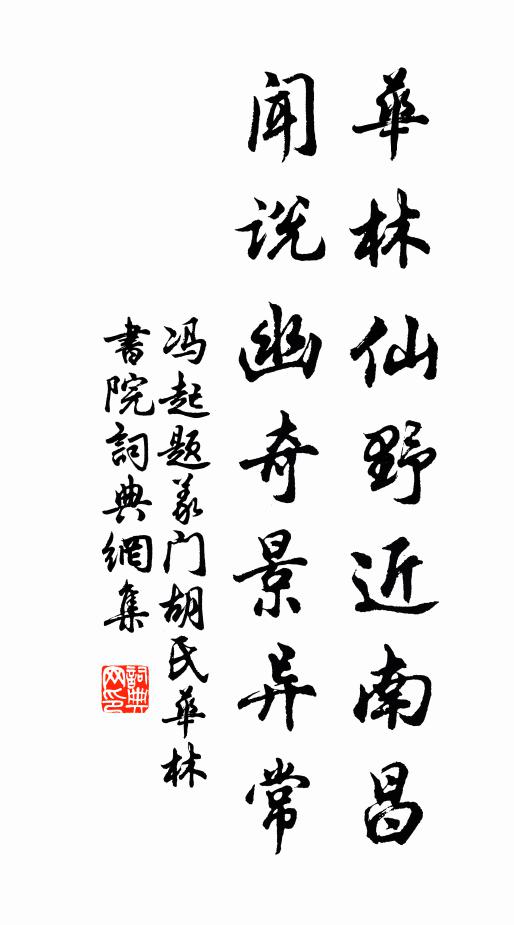 華林仙野近南昌
聞说幽奇景异常
冯起题义门胡氏華林
書院詞典網集
詞典
网印